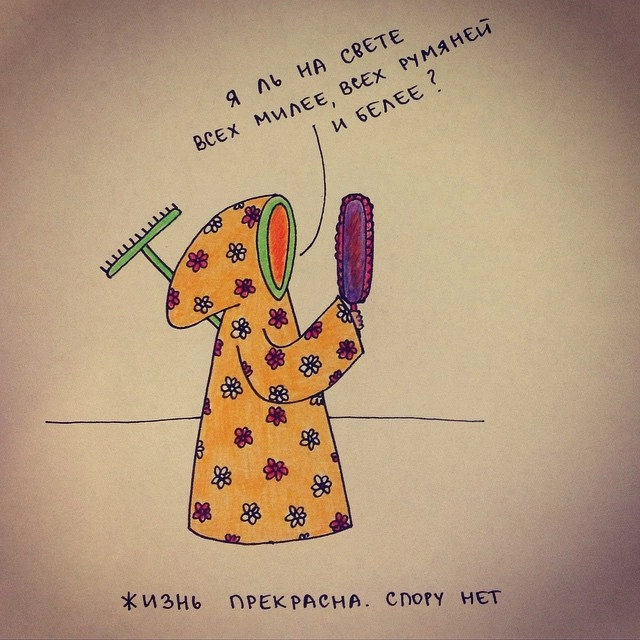 Я ЛЬ НА СВЕТЕ
ВСЕХ МИЛЕЕ, ВСЕХ РУМЯНЕЙ
И БЕЛЕЕ?
ЖИЗНЬ ПРЕКРАСНА. СПОРУ НЕТ